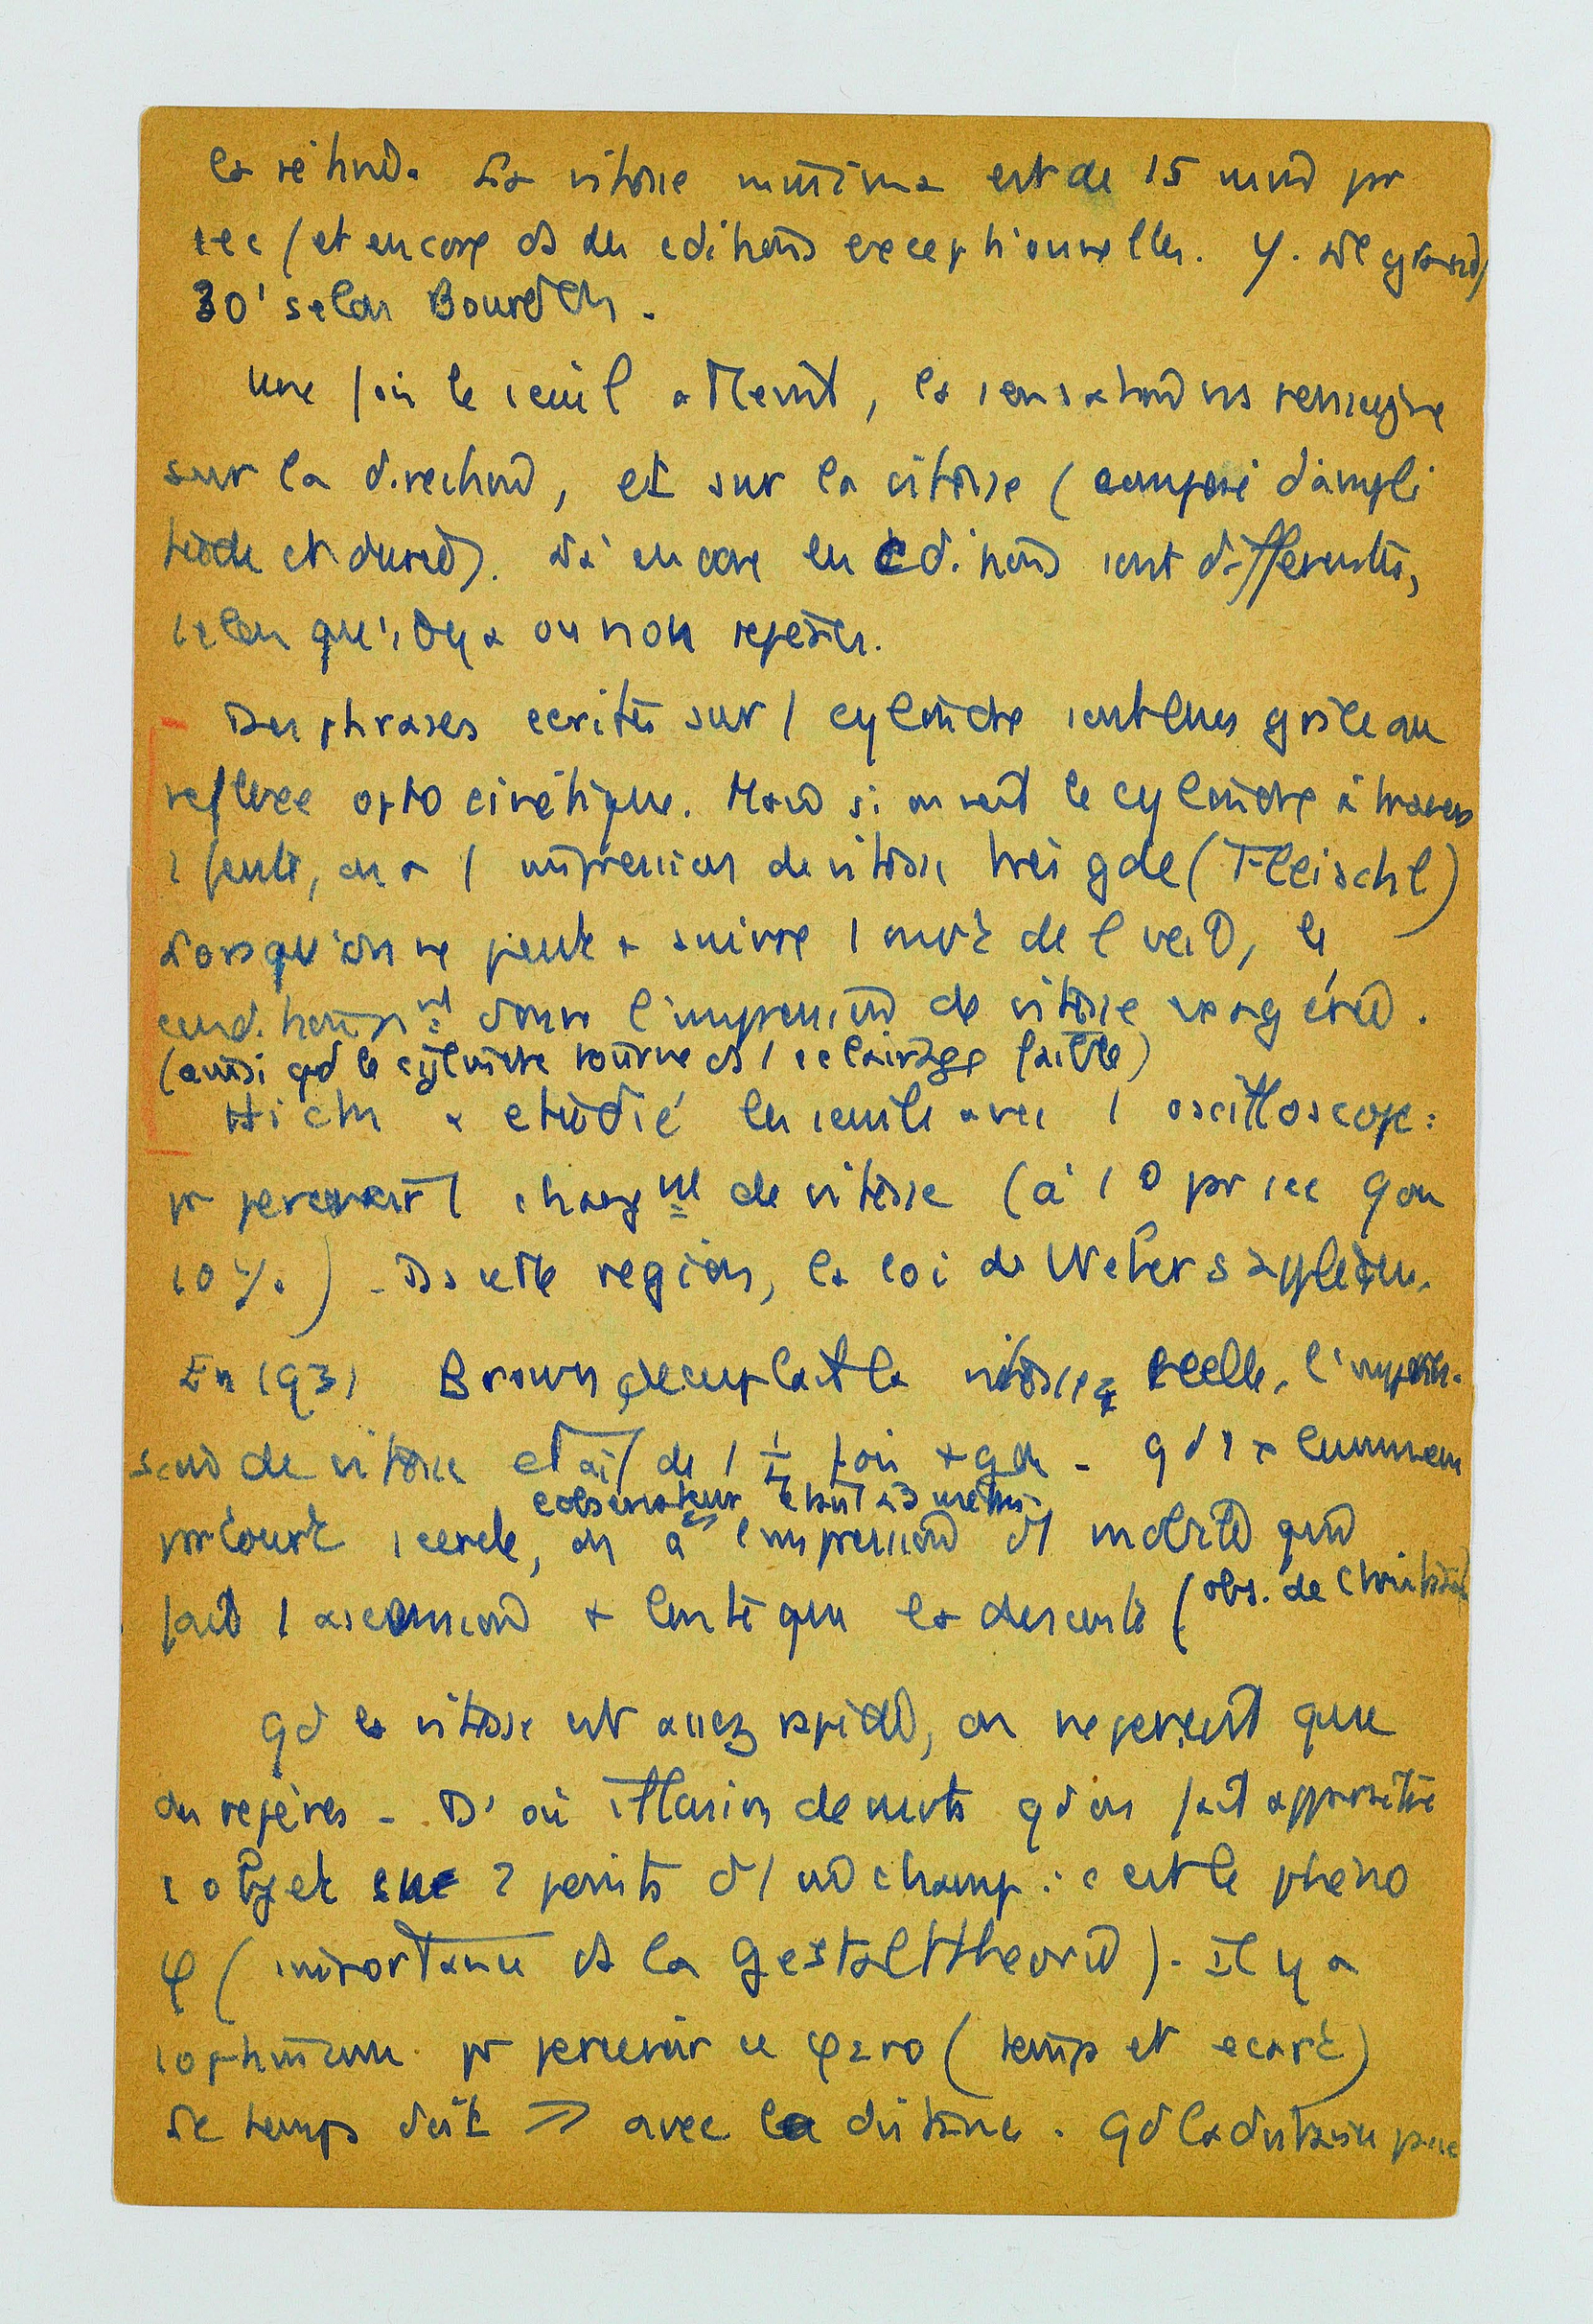 la rétine. La vitesse minima est de 15 min pr
sec (et encore ds des cditions exceptionnelles.
30' selon Bourdon.
Une fois le seuil atteint, la sensation ns renseigne
sur la direction, et sur la vitesse (composé d'ampli
tude et durée). Là encore les cditions sont différentes,
selon qu'il y a ou non repères.
Des phrases ecrites sur 1 cylindre sont lues grâce au
reflexe opto cinétique. Mais si on voit le cylindre à travers
1 fente, on a 1 impression de vitesse très gde (Fleischl)
Lorsqu'on ne peut + suivre 1 mvt de l'oeil, le
donne l'impression de vitesse exagérée.
(aussi qd le cylindre tourne ds 1 eclairage faible)
a etudié les seuils avec 1 oscilloscope:
pr percevoir 1 changmt de vitesse (à 10 pr sec
10 %) - Ds cette region, la loi de Weber s'applique.
En 1931 Brown decuplait la vitesse reelle, l'impres-
sion de vitesse etait de 1 fois + gde - qd 1 pt lumineux
l'observateur etant à 3 mètres
parcourt 1 cercle, on a l'impression d'1 mobile qui
fait 1 ascension + lente que la descente (obs. de
Qd la vitesse est assez rapide, on ne perçoit que
des repères - D'où illusion de mvts qd on fait apparaître
1 objet sur 2 points d'1 champ : c'est le phéno
φ (importance ds la Gestalttheorie). Il y a
1 optimum pr percevoir ce φ (temps et ecart)
Le temps doit ↗ avec la distance. Qd la distance